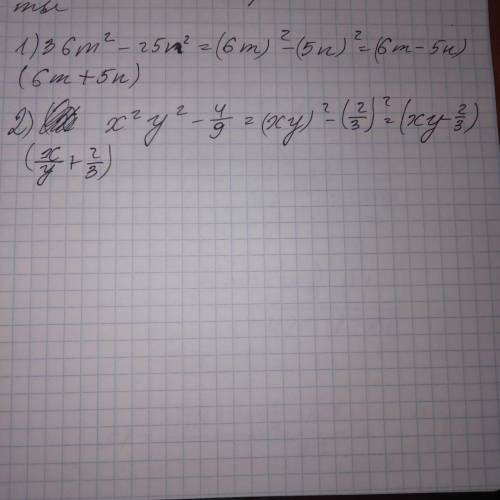 ты
1) 36m² - 25n² = (6m)² - (5n)² = (6m - 5n)
(6m + 5n)
2) x² y² - 4/9 = (xy)² - (2/3)² = (xy - 2/3)
(x/y + 2/3)